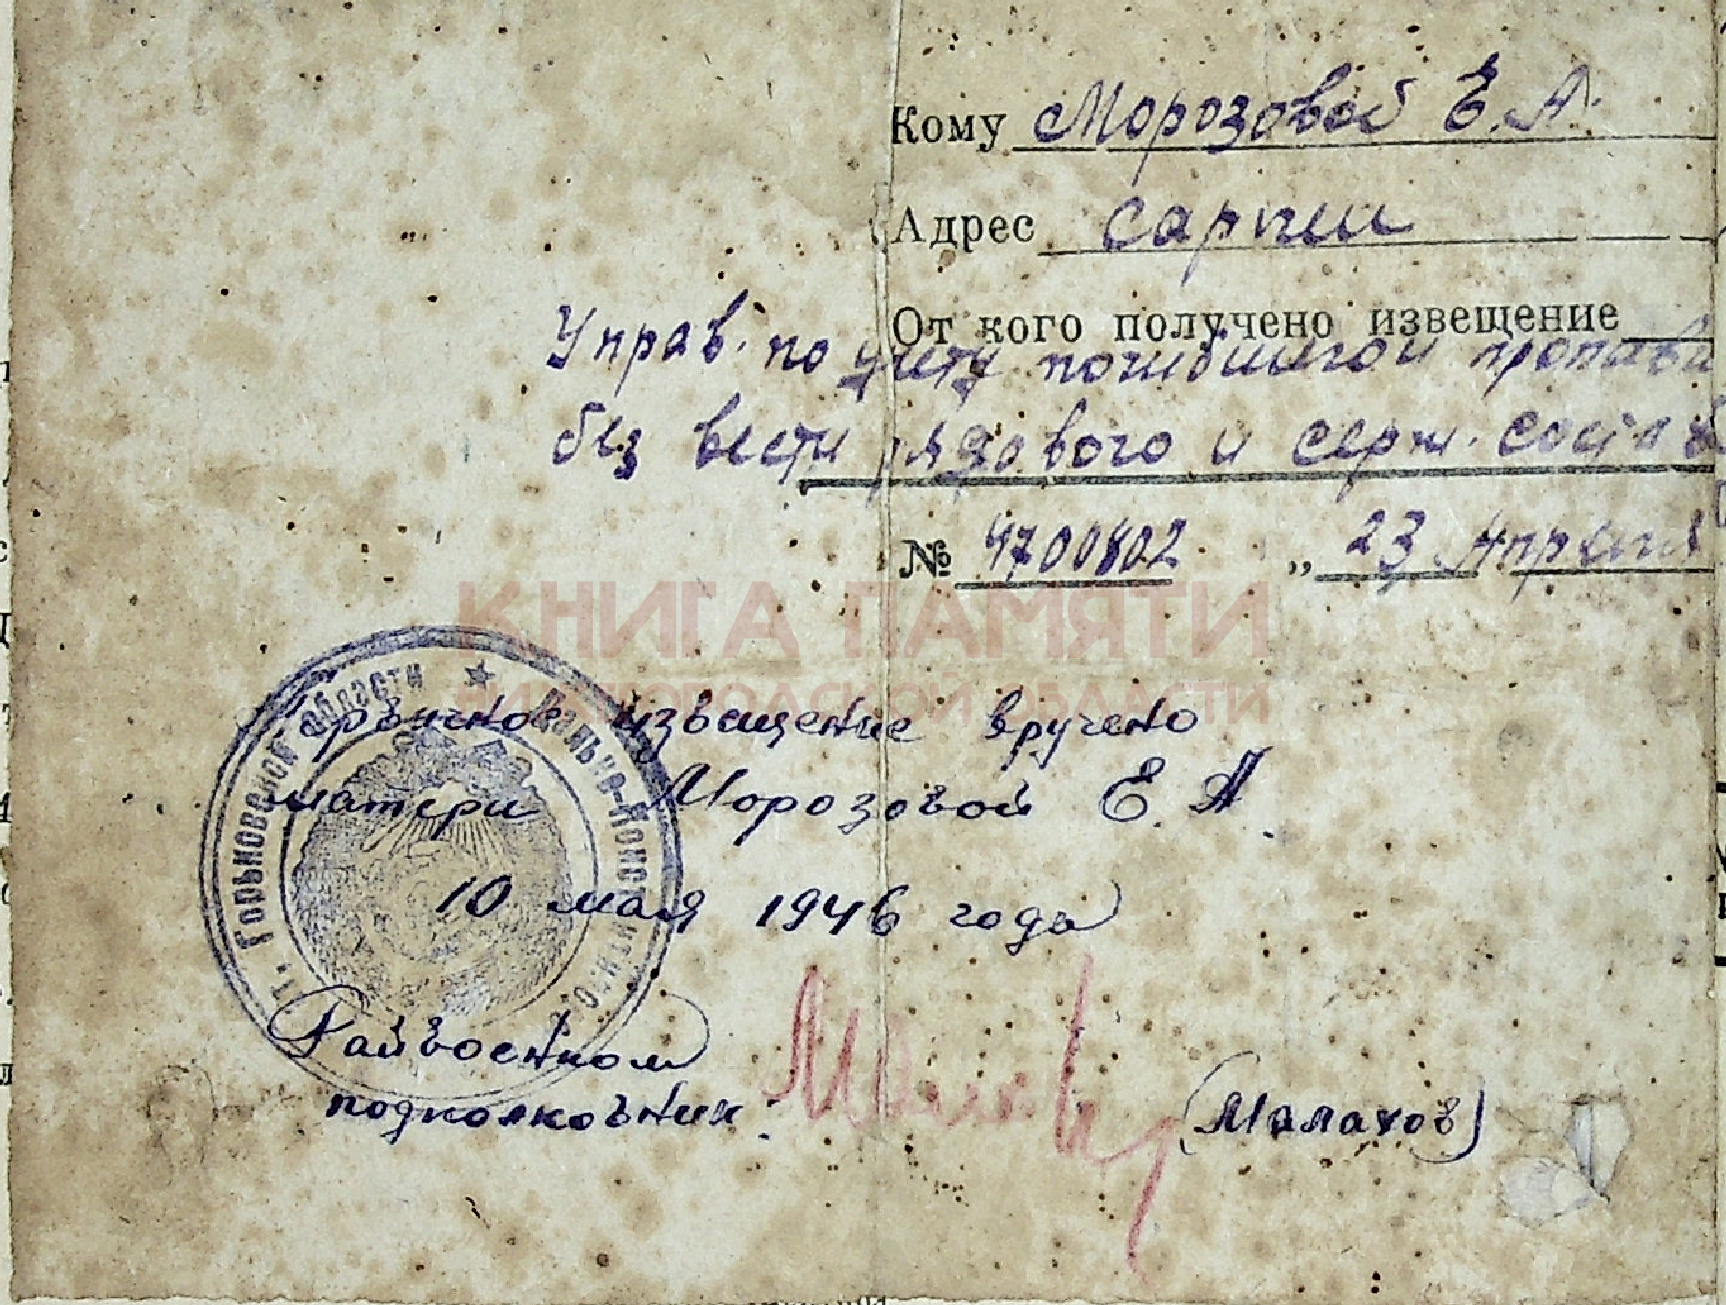 Кому Морозовой Е. А.
Адрес
От кого получено извещение
Управ. по учету погибшего и пропавш
без вести рядового и серж. состава
№ 4700802 „ 23 Апреля
КНИГА ПАМЯТИ
НИЖЕГОРОДСКОЙ ОБЛАСТИ
извещение вручено
матери Морозовой Е. А.
10 мая 1946 года
Райвоенком
подполковник: (Малахов)
Горьковской области ★